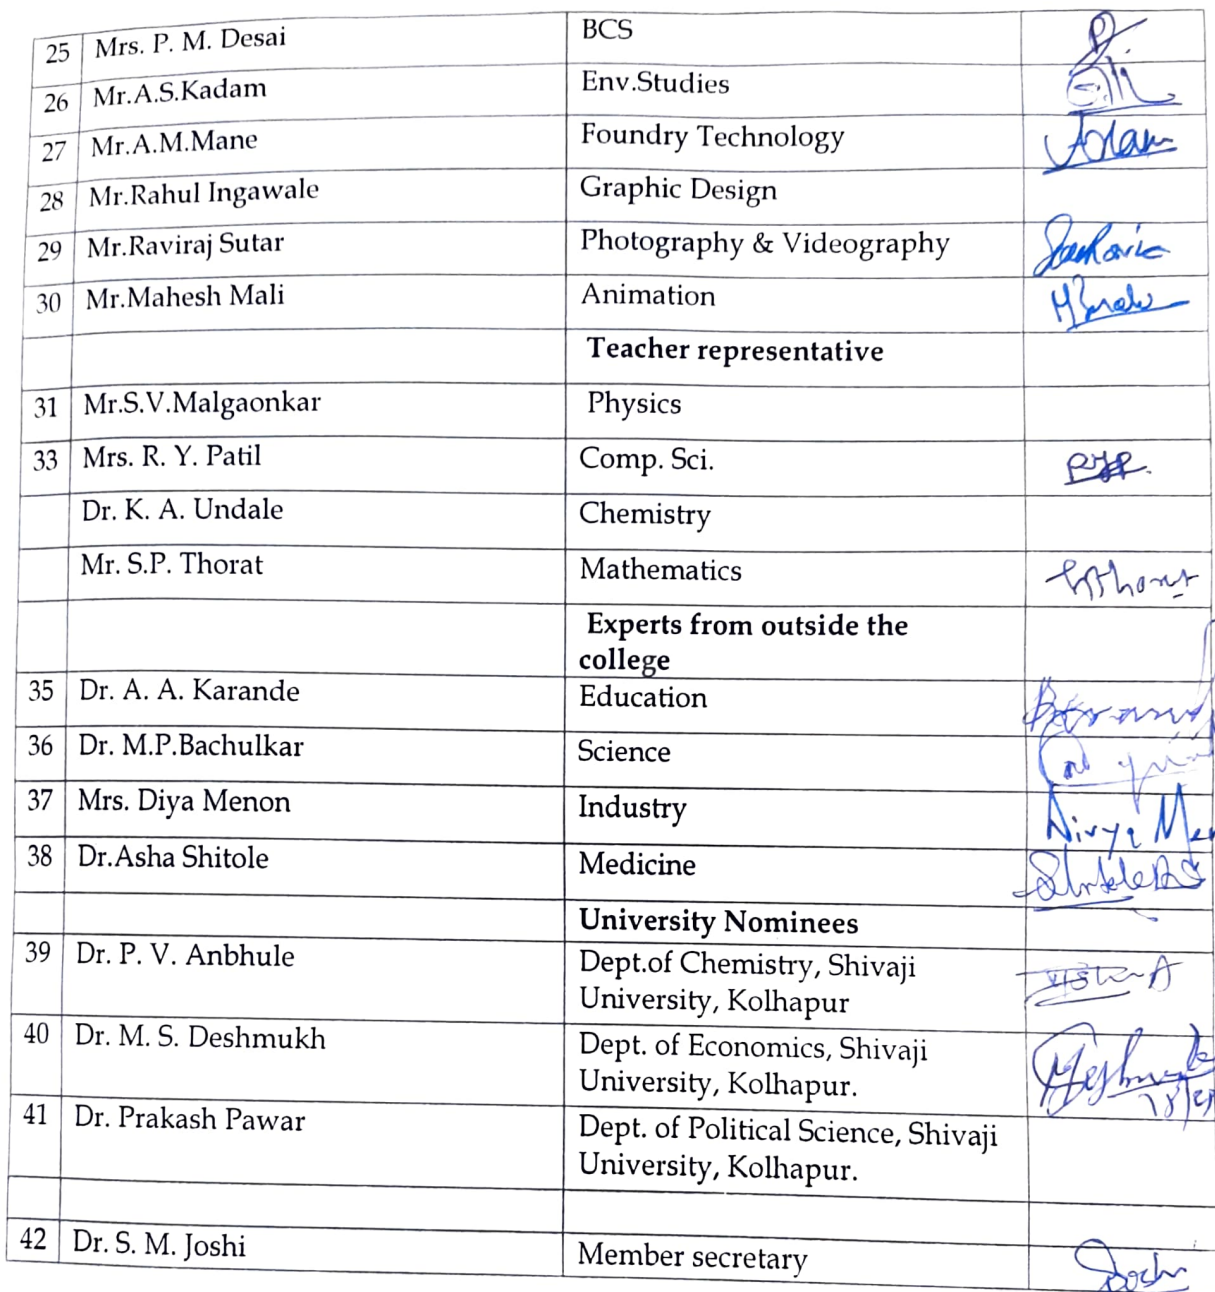 25 Mrs. P. M. Desai BCS
26 Mr.A.S.Kadam Env.Studies
27 Mr.A.M.Mane Foundry Technology
28 Mr.Rahul Ingawale Graphic Design
29 Mr.Raviraj Sutar Photography & Videography
30 Mr.Mahesh Mali Animation
Teacher representative
31 Mr.S.V.Malgaonkar Physics
33 Mrs. R. Y. Patil Comp. Sci.
Dr. K. A. Undale Chemistry
Mr. S.P. Thorat Mathematics
Experts from outside the
college
35 Dr. A. A. Karande Education
36 Dr. M.P.Bachulkar Science
37 Mrs. Diya Menon Industry
38 Dr.Asha Shitole Medicine
University Nominees
39 Dr. P. V. Anbhule Dept.of Chemistry, Shivaji
University, Kolhapur
40 Dr. M. S. Deshmukh Dept. of Economics, Shivaji
University, Kolhapur.
41 Dr. Prakash Pawar Dept. of Political Science, Shivaji
University, Kolhapur.
42 Dr. S. M. Joshi Member secretary